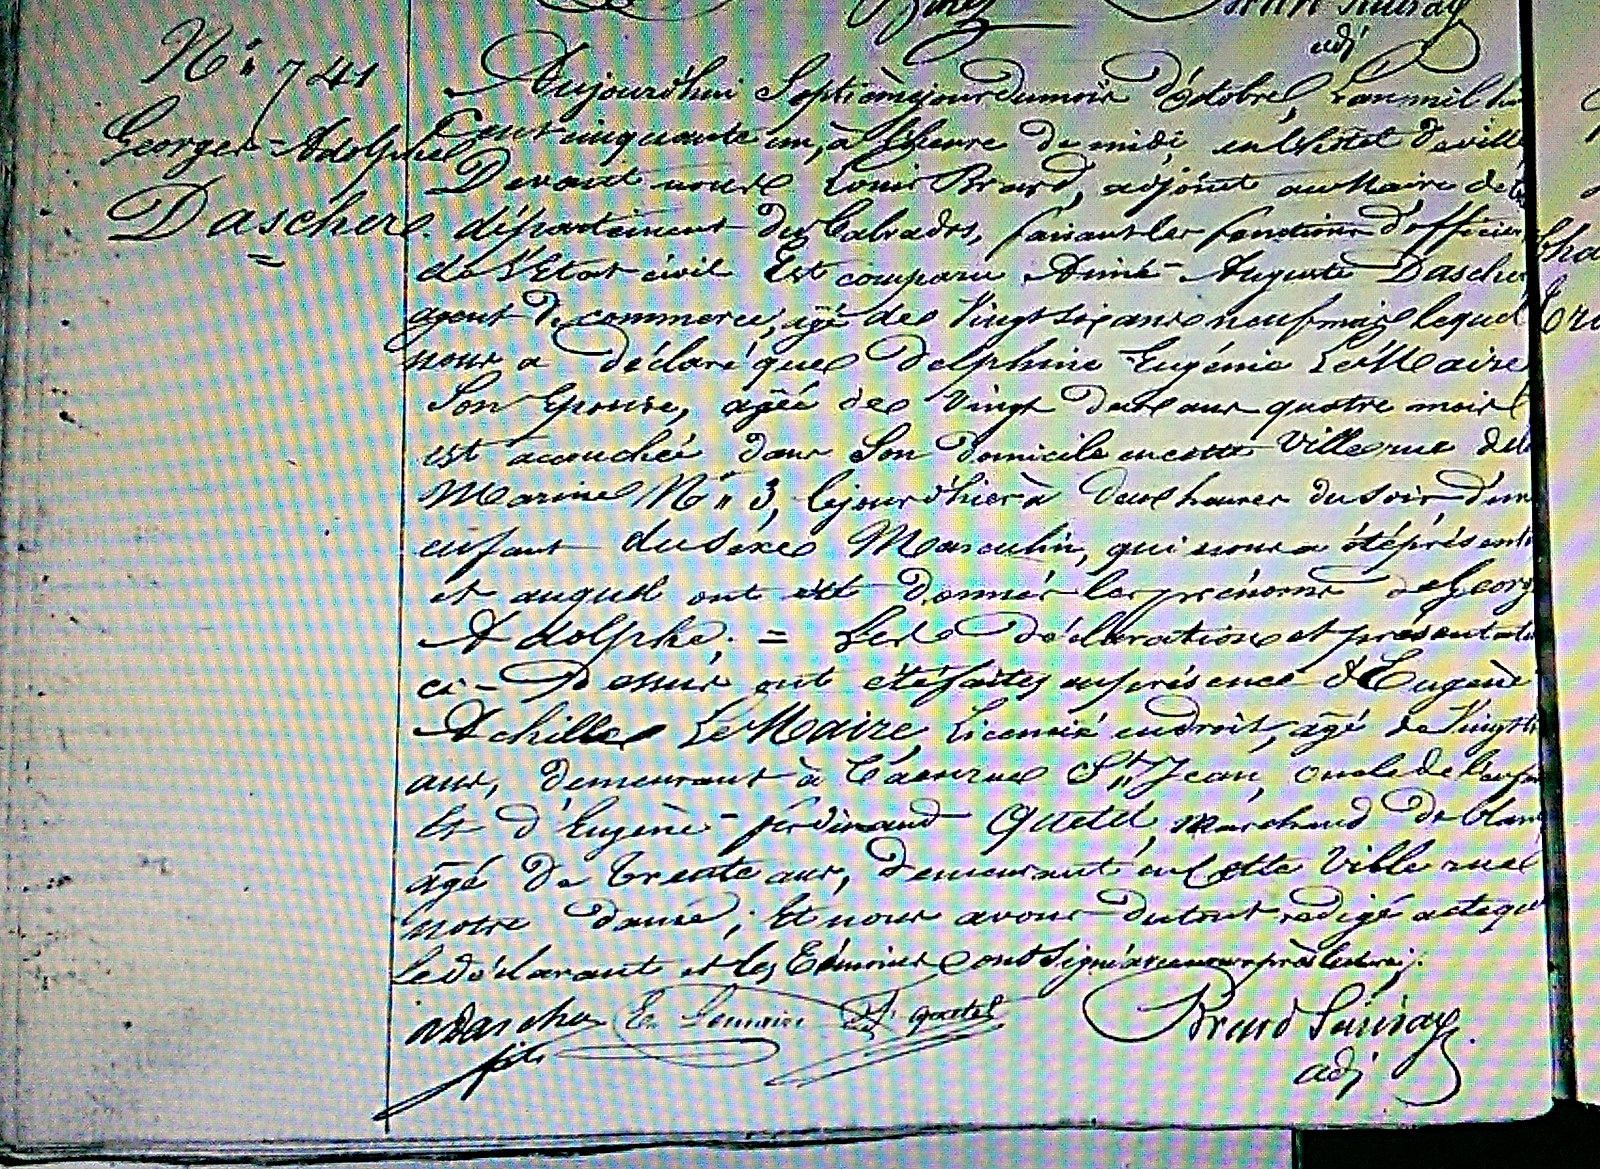 N° 741
Georges-Adolphe
Dascher.
Aujourd'hui Septième jour du mois d'Octobre, L'an mil hu
Cent cinquante un, à l'heure de midi en l'hotel de ville
Devant nous Louis Brard, adjoint au Maire de
département du Calvados, faisant les fonctions d'officier
de l'Etat civil Est comparu Aimé-Auguste Dascher
agent de commerce, âgé de Vingt six ans neuf mois lequel
nous a déclaré que Delphine Eugénie LeMaire
Son Epouse, agée de Vingt deux ans quatre mois
est accouchée dans Son domicile en cette Ville rue de la
Marine N° 3, le jour d'hier à deux heures du soir d'un
enfant du Séxe Masculin, qui nous a été présenté
et auquel ont été donnés les prénoms de Georg
Adolphe. = Les déclaration et présentati
ci-Dessus ont été faites en présence d'Eugène
Achille LeMaire, Licencié en droit, âgé de Vingt
ans, demeurant à Caen rue St Jean, oncle de l'enfa
Et d'Eugène-ferdinand Quetel, Marchand de blan
âgé de trente ans, demeurant en Cette Ville rue
notre dame; Et nous avons du tout rédigé acte que
le déclarant et les témoins ont Signé avec nous après lecture.
ADascher E. Lemaire F. quetel Brard
fils adj